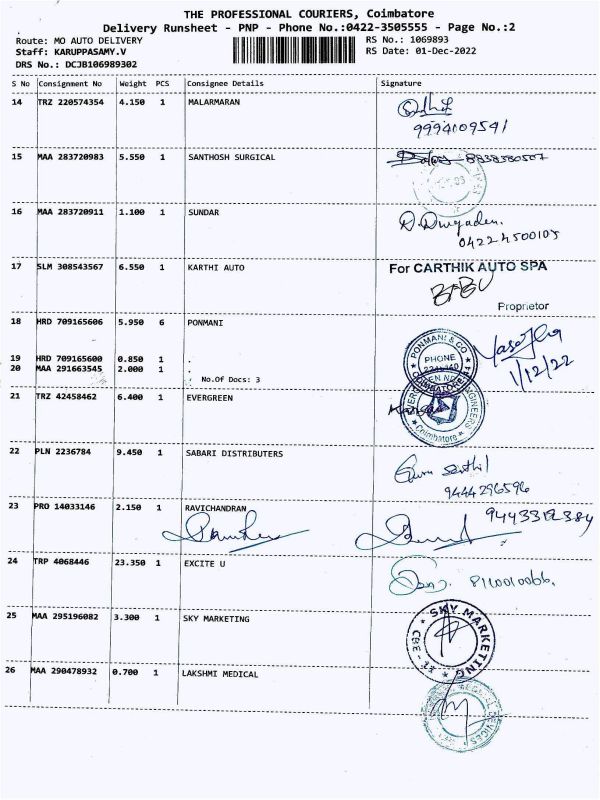 THE PROFESSIONAL COURIERS, Coimbatore
Delivery Runsheet - PNP - Phone No.:0422-3505555 - Page No.:2
Route: MO AUTO DELIVERY RS No.: 1069893
Staff: KARUPPASAMY.V RS Date: 01-Dec-2022
DRS No.: DCJB106989302
S No Consignment No Weight PCS Consignee Details Signature
14 TRZ 220574354 4.150 1 MALARMARAN
9994109541
15 MAA 283720983 5.550 1 SANTHOSH SURGICAL
16 MAA 283720911 1.100 1 SUNDAR
04224500105
17 SLM 308543567 6.550 1 KARTHI AUTO For CARTHIK AUTO SPA
BABU
Proprietor
18 HRD 709165606 5.950 6 PONMANI
PONMANI & CO
PHONE
COIMBATORE
1/12/22
19 HRD 709165600 0.850 1 .
20 MAA 291663545 2.000 1 .
No.Of Docs: 3
21 TRZ 42458462 6.400 1 EVERGREEN
Coimbatore
22 PLN 2236784 9.450 1 SABARI DISTRIBUTERS
Guru Senthil
9444296596
23 PRO 14033146 2.150 1 RAVICHANDRAN
9443312384
24 TRP 4068446 23.350 1 EXCITE U
8110010066.
25 MAA 295196082 3.300 1 SKY MARKETING
SKY MARKETING
26 MAA 290478932 0.700 1 LAKSHMI MEDICAL